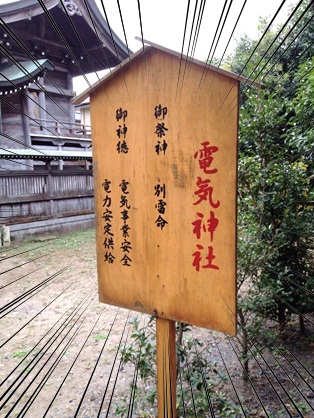 電気神社
御祭神 別雷命
御神徳 電気事業安全
電力安定供給